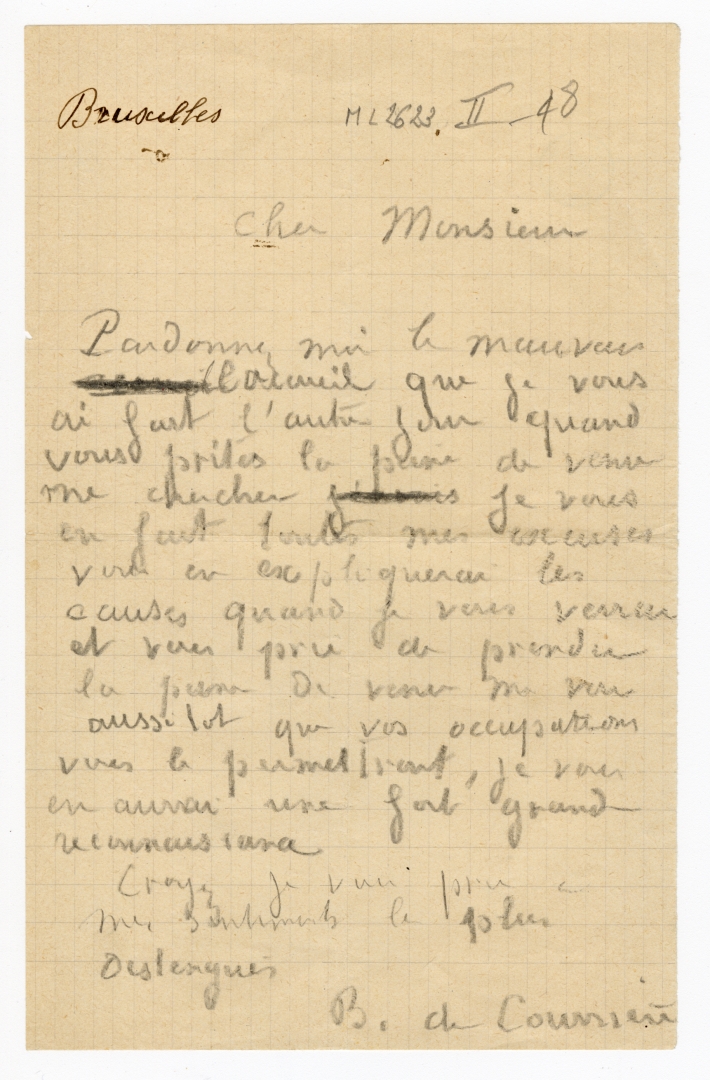 Bruxelles
ML2623. II 48
Cher Monsieur
Pardonnez moi le mauvais
l'accueil que je vous
ai fait l'autre jour quand
vous prîtes la peine de venir
me chercher je vous
en fait toutes mes excuses
vous en expliquerai les
causes quand je vous verrai
et vous prie de prendre
la peine de venir me voir
aussitot que vos occupations
vous le permettront, je vous
en aurai une fort grande
reconnaissance
Croyez je vous prie a
mes sentiments les plus
B. de